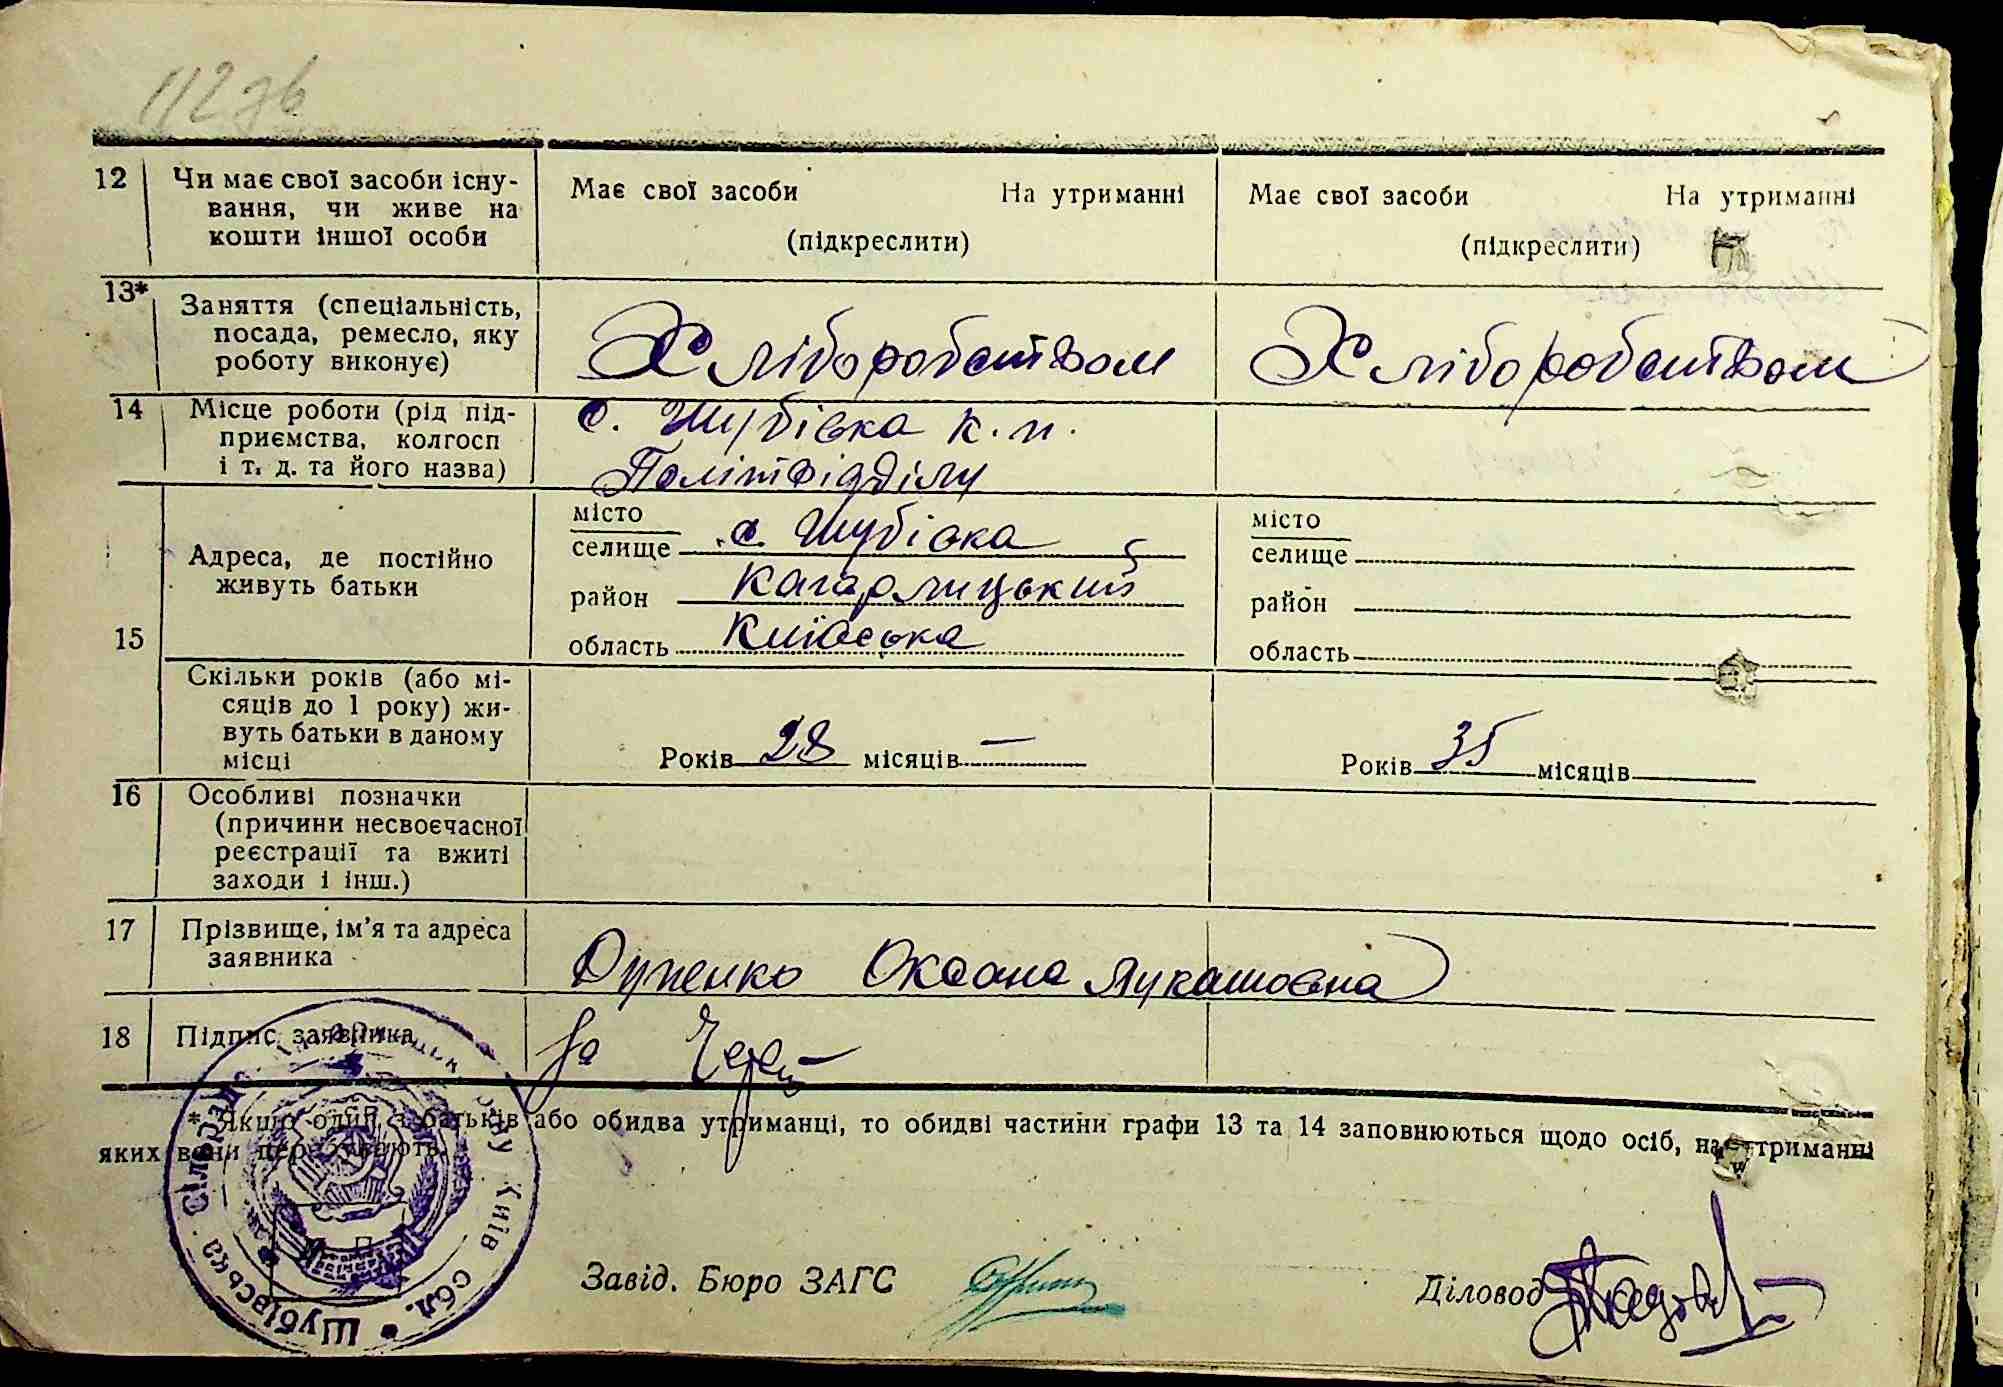 112 зв
12 Чи має свої засоби існу- Має свої засоби На утриманні Має свої засоби На утриманні
вання, чи живе на
кошти іншої особи (підкреслити) (підкреслити)
13* Заняття (спеціальність,
посада, ремесло, яку Хліборобством Хліборобством
роботу виконує)
14 Місце роботи (рід під- с. Шубівка к.п.
приємства, колгосп
і т. д. та його назва) Політвідділу
15 Адреса, де постійно
живуть батьки
місто
селище с. Шубівка
район Кагарлицький
область Київська
місто
селище
район
область
Скільки років (або мі-
сяців до 1 року) жи-
вуть батьки в даному
місці
Років 28 місяців —
Років 35 місяців
16 Особливі позначки
(причини несвоєчасної
реєстрації та вжиті
заходи і інш.)
17 Прізвище, ім'я та адреса
заявника Оксана Лукашовна
18 Підпис заявника за
* Якщо один з батьків або обидва утриманці, то обидві частини графи 13 та 14 заповнюються щодо осіб, на утриманні
яких вони перебувають.
Шубівська Сільрада Київ обл.
М П
Завід. Бюро ЗАГС Діловод